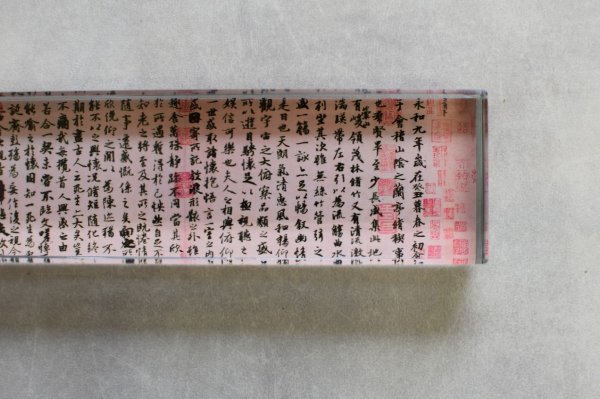 永和九年歲在癸丑暮春之初會
于會稽山陰之蘭亭脩稧事
也群賢畢至少長咸集此地
有崇山峻領茂林脩竹又有清流激
湍暎帶左右引以為流觴曲水
列坐其次雖無絲竹管弦之
盛一觴一詠亦足以暢敘幽情
是日也天朗氣清惠風和暢仰
觀宇宙之大俯察品類之盛
所以遊目騁懷足以極視聽之
娛信可樂也夫人之相與俯仰
一世或取諸懷抱悟言一室之內
或因寄所託放浪形骸之外雖
趣舍萬殊靜躁不同當其欣
於所遇暫得於己怏然自足不
知老之將至及其所之既惓情
隨事遷感慨係之矣向之所
欣俛仰之閒以為陳迹猶不
能不以之興懷況脩短隨化終
期於盡古人云死生亦大矣豈
不痛哉每攬昔人興感之由
若合一契未嘗不臨文嗟悼
能喻之於懷固知一死生為虛
誕齊彭殤為妄作後之視今